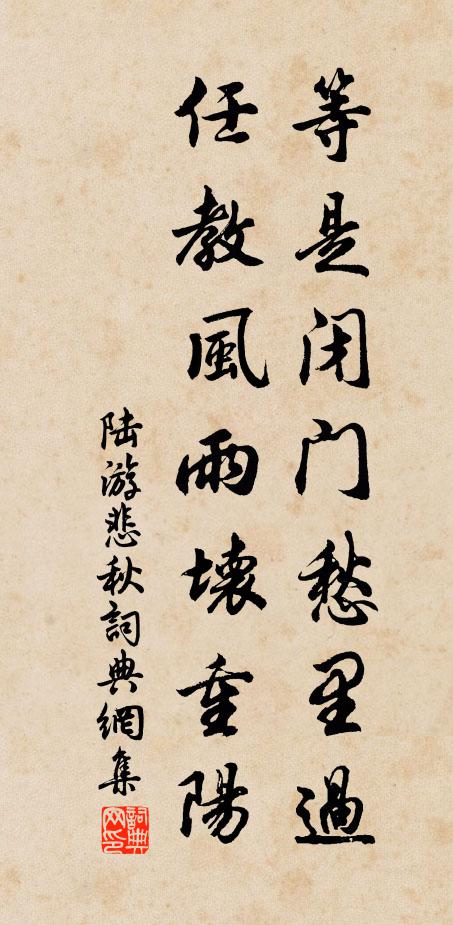 等是闭门愁里過
任教風雨壞重陽
陆游悲秋詞典網集
詞典網印